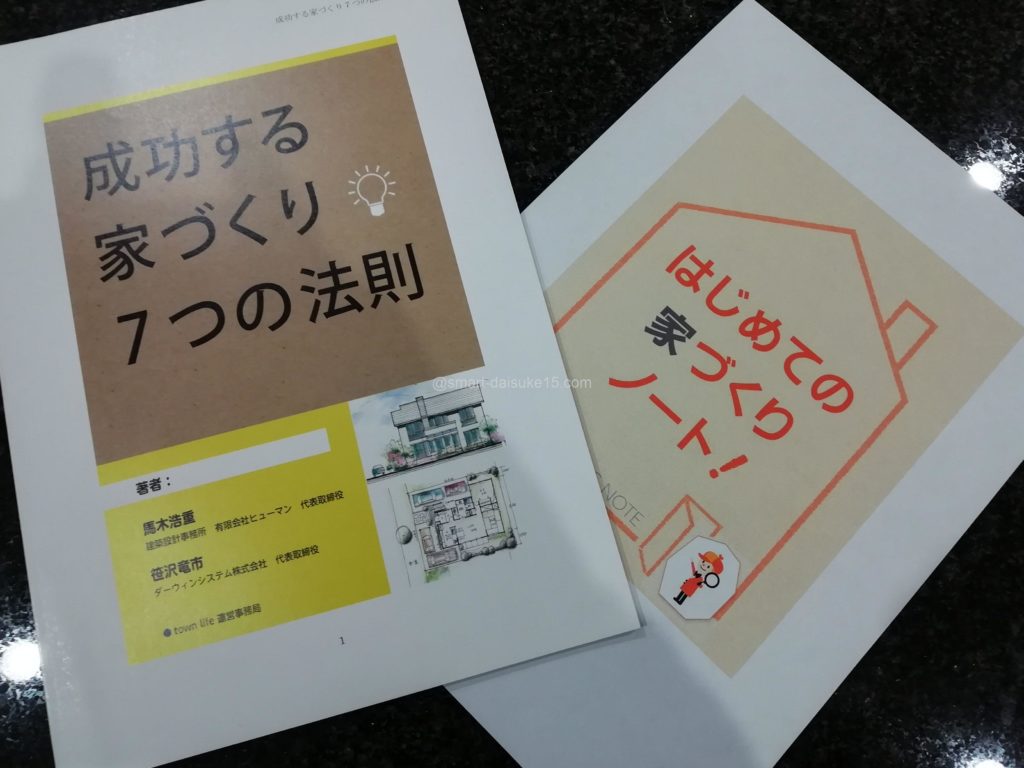 成功する家づくり7つの
成功する
家づくり
7つの法則
著者：
馬木浩重
建築設計事務所 有限会社ヒューマン 代表取締役
笹沢竜市
ダーウィンシステム株式会社 代表取締役
town life 運営事務局
1
@smart-daisuke15.com
はじめての
家づくり
ノート!
NOTE